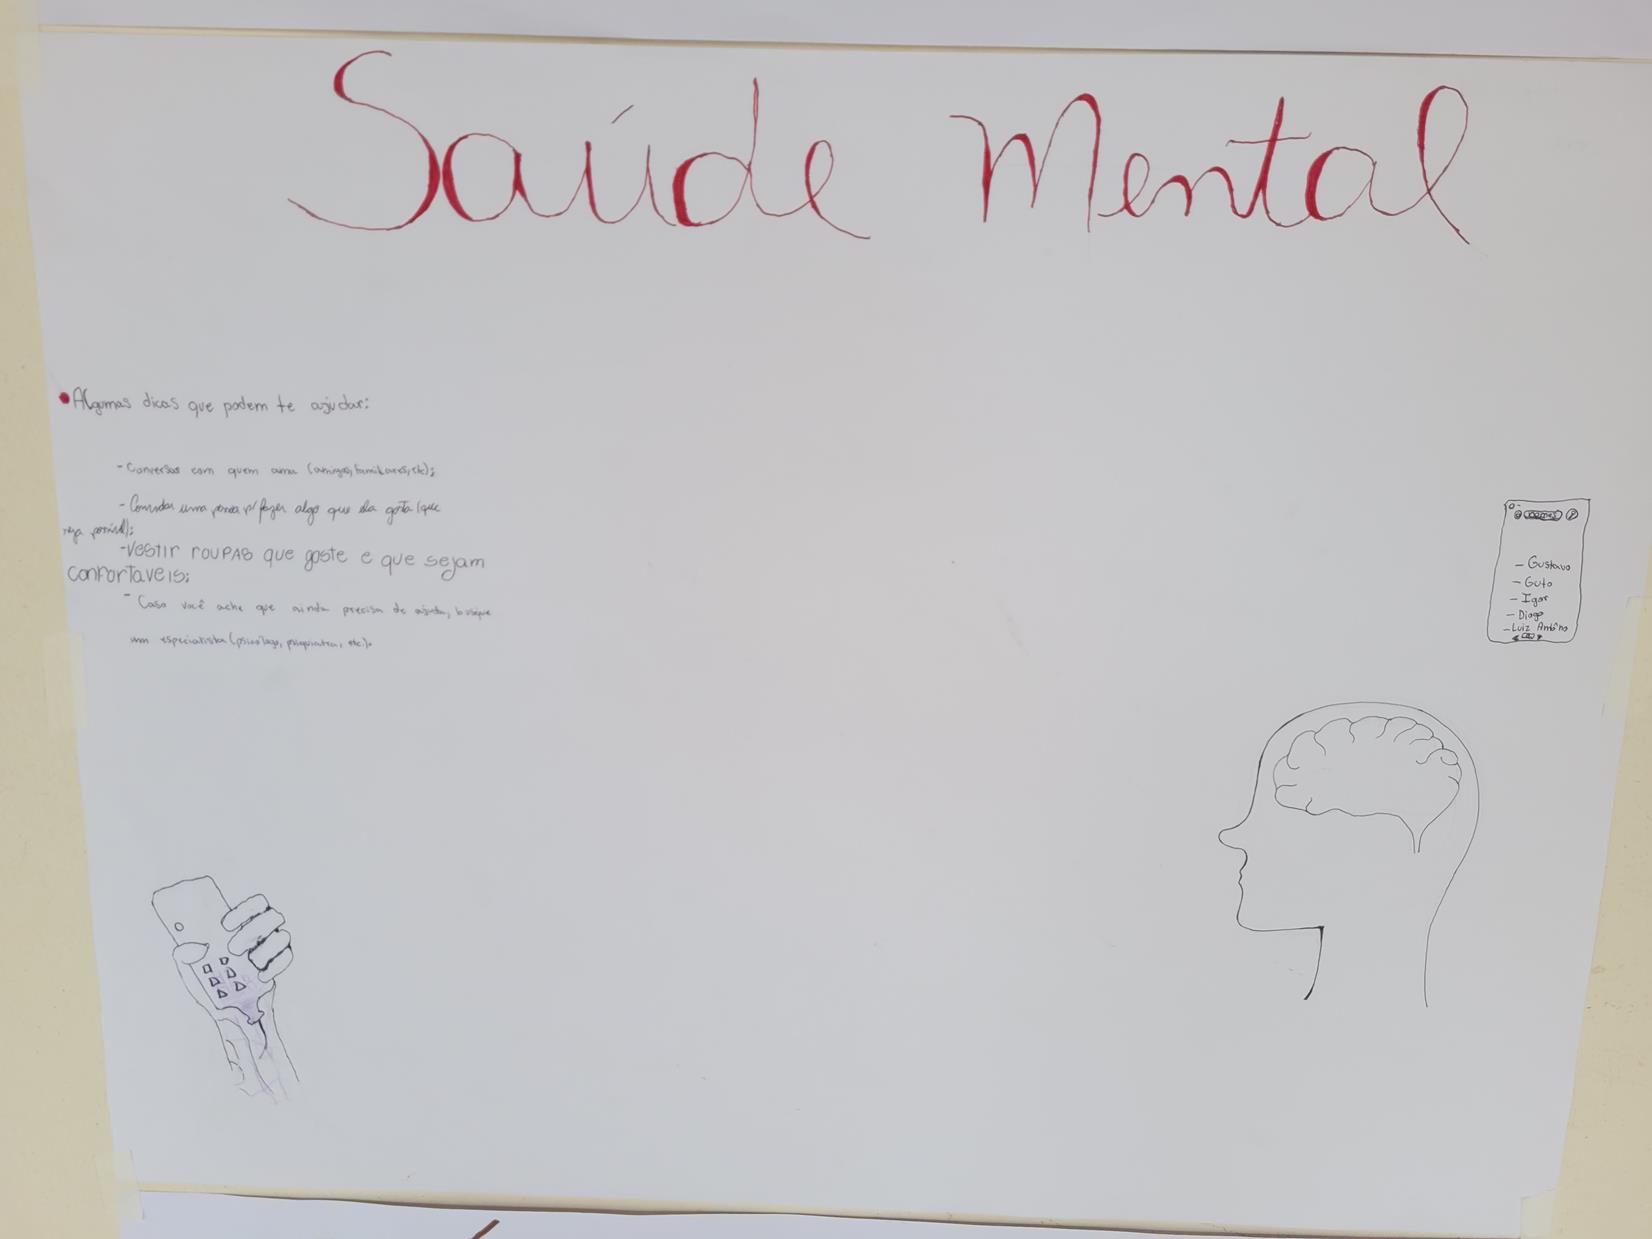 Saúde Mental
Algumas dicas que podem te ajudar:
- Conversar com quem ama (amigos, familiares, etc);
- Convidar uma pessoa p/ fazer algo que ela gosta (que
seja possível);
- Vestir roupas que goste e que sejam
confortaveis;
- Caso você ache que ainda precisa de ajuda, busque
um especialista (psicólogo, psiquiatra, etc).
- Gustavo
- Guto
- Igor
- Diogo
- Luiz Antônio